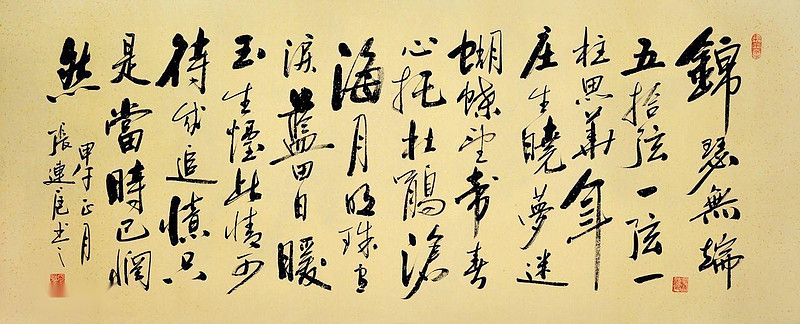 錦瑟無端
五拾弦一弦一
柱思華年
庄生曉夢迷
蝴蝶望帝春
心托杜鵑滄
海月明珠有
淚藍田日暖
玉生煙此情可
待成追憶只
是當時已惘
然
甲午正月
張連书之